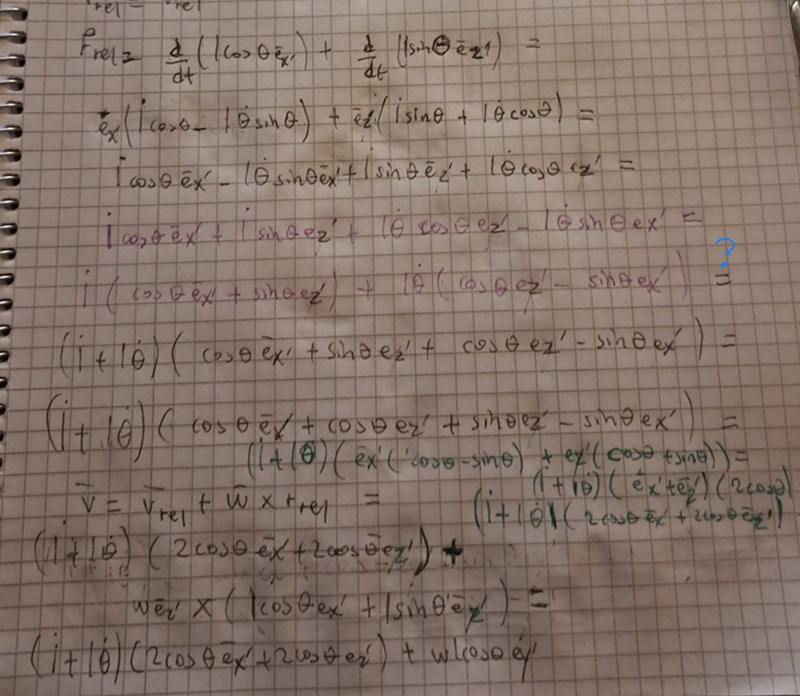 r̄rel = r̄rel
ṙrel = d/dt (l cosθ ēx') + d/dt (l sinθ ēz') =
ēx' (l̇ cosθ - lθ̇ sinθ) + ēz' (l̇ sinθ + lθ̇ cosθ) =
l̇ cosθ ēx' - lθ̇ sinθ ēx' + l̇ sinθ ēz' + lθ̇ cosθ ez' =
l̇ cosθ ēx' + l̇ sinθ ez' + lθ̇ cosθ ez' - lθ̇ sinθ ex' =
?
l̇ (cosθ ēx' + sinθ ez') + lθ̇ (cosθ ez' - sinθ ex') =
(l̇ + lθ̇) (cosθ ēx' + sinθ ez' + cosθ ez' - sinθ ex') =
(l̇ + lθ̇) (cosθ ēx' + cosθ ez' + sinθ ez' - sinθ ex') =
(l̇ + lθ̇) (ēx' (cosθ - sinθ) + ez' (cosθ + sinθ)) =
(l̇ + lθ̇) (ēx' + ēz') (2cosθ)
(l̇ + lθ̇) (2cosθ ēx' + 2cosθ ēz')
v̄ = v̄rel + w̄ × rrel =
(l̇ + lθ̇) (2cosθ ēx' + 2cosθ ēz') +
wēz' × (l cosθ ex' + l sinθ ēz') =
(l̇ + lθ̇) (2cosθ ēx' + 2cosθ ez') + wl cosθ ēy'